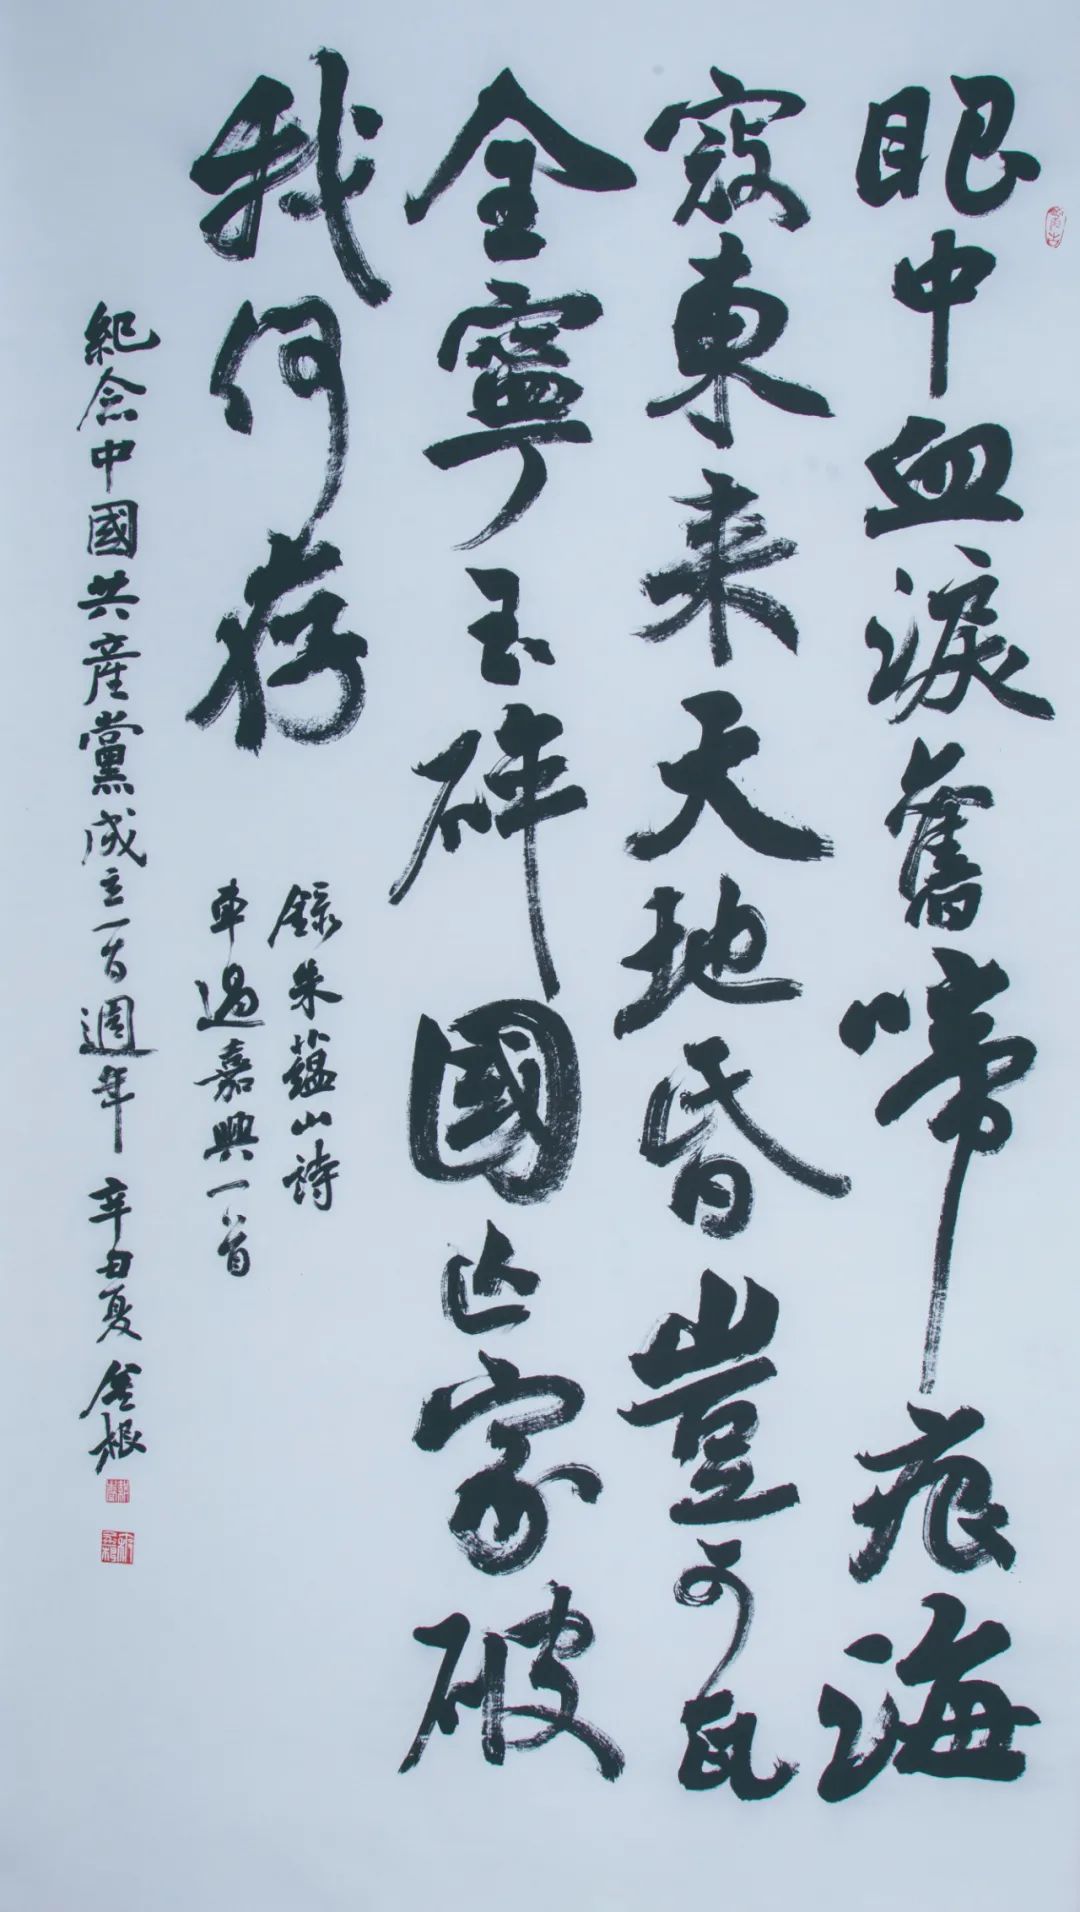 眼中血淚舊啼痕海
寇東来天地昏豈可瓦
全寧玉碎國亡家破
我何存
錄朱蘊山詩
車過嘉興一首
紀念中國共產黨成立一百週年 辛丑夏 金根